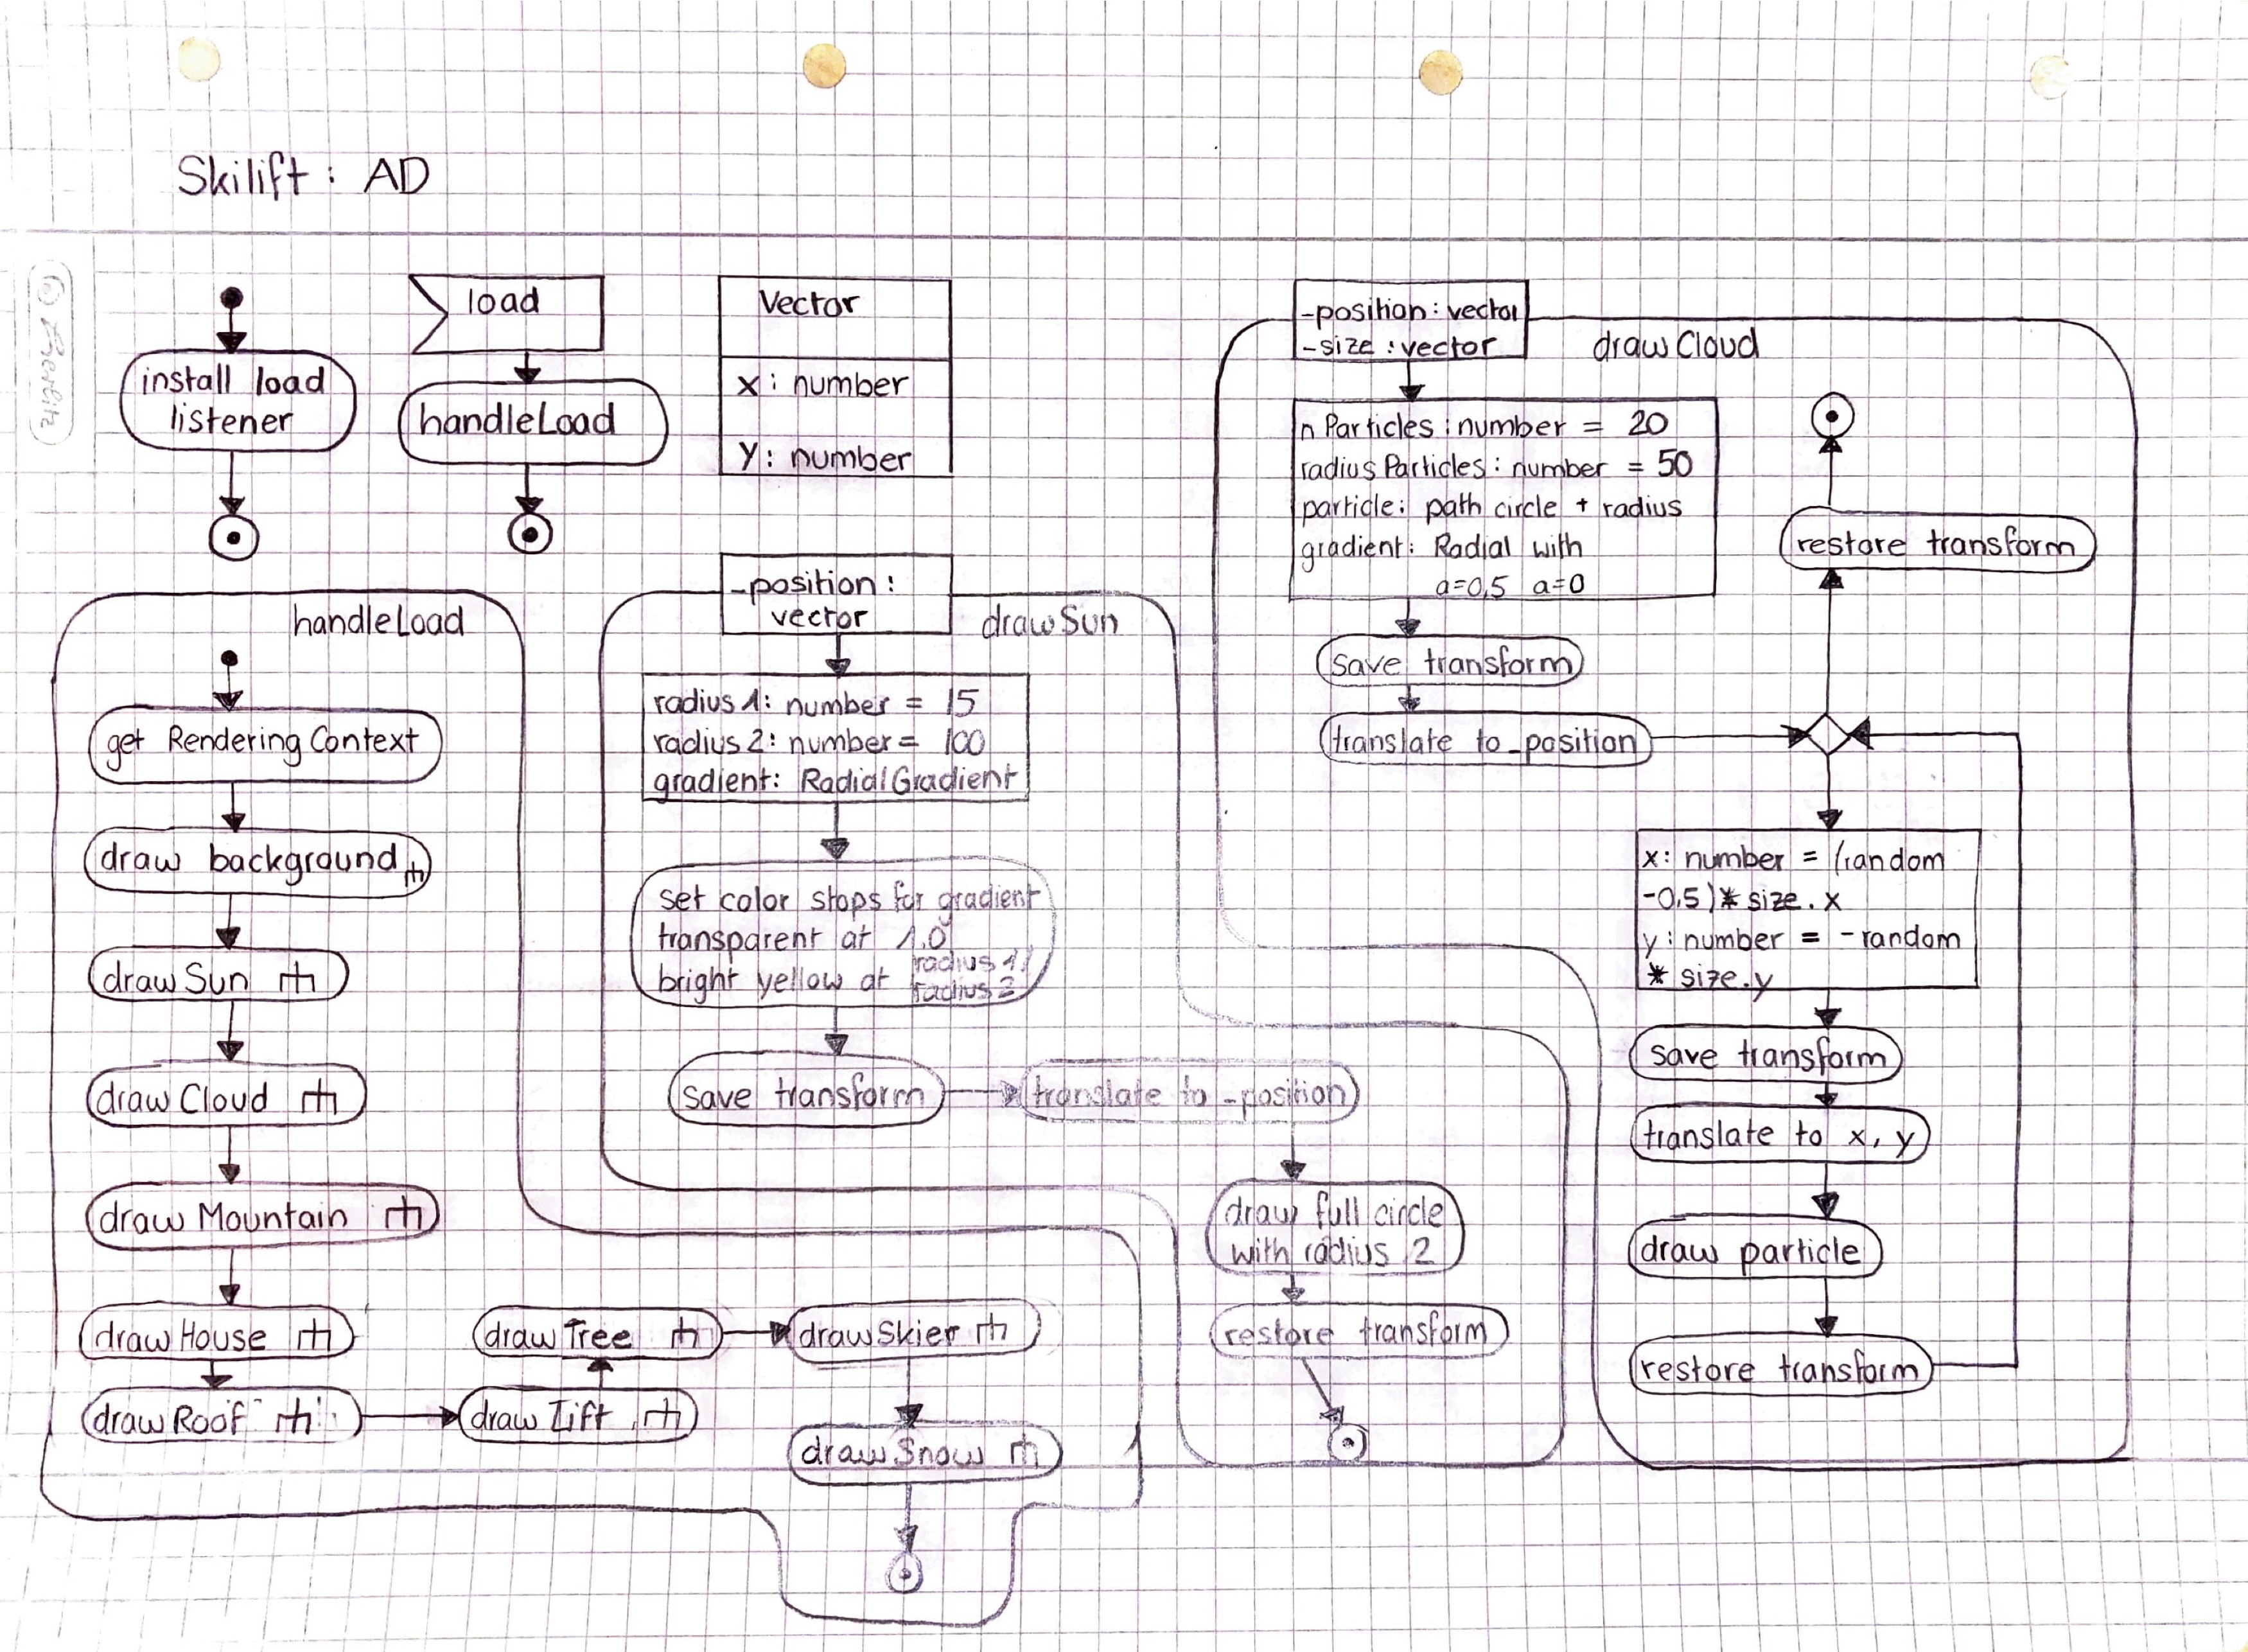 Skilift: AD
install load
listener
load
handleLoad
Vector
x: number
y: number
handleLoad
get Rendering Context
draw background
drawSun
drawCloud
drawMountain
drawHouse
drawRoof
drawLift
drawTree
drawSkier
drawSnow
-position:
vector
drawSun
radius 1: number = 15
radius 2: number = 100
gradient: RadialGradient
set color stops for gradient
transparent at 1.0
bright yellow at radius 1/
radius 2
save transform
translate to -position
draw full circle
with radius 2
restore transform
-position: vector
-size: vector
drawCloud
nParticles: number = 20
radiusParticles: number = 50
particle: path circle + radius
gradient: Radial with
a=0,5 a=0
save transform
translate to -position
restore transform
x: number = (random
-0,5)* size.x
y: number = -random
* size.y
save transform
translate to x, y
draw particle
restore transform